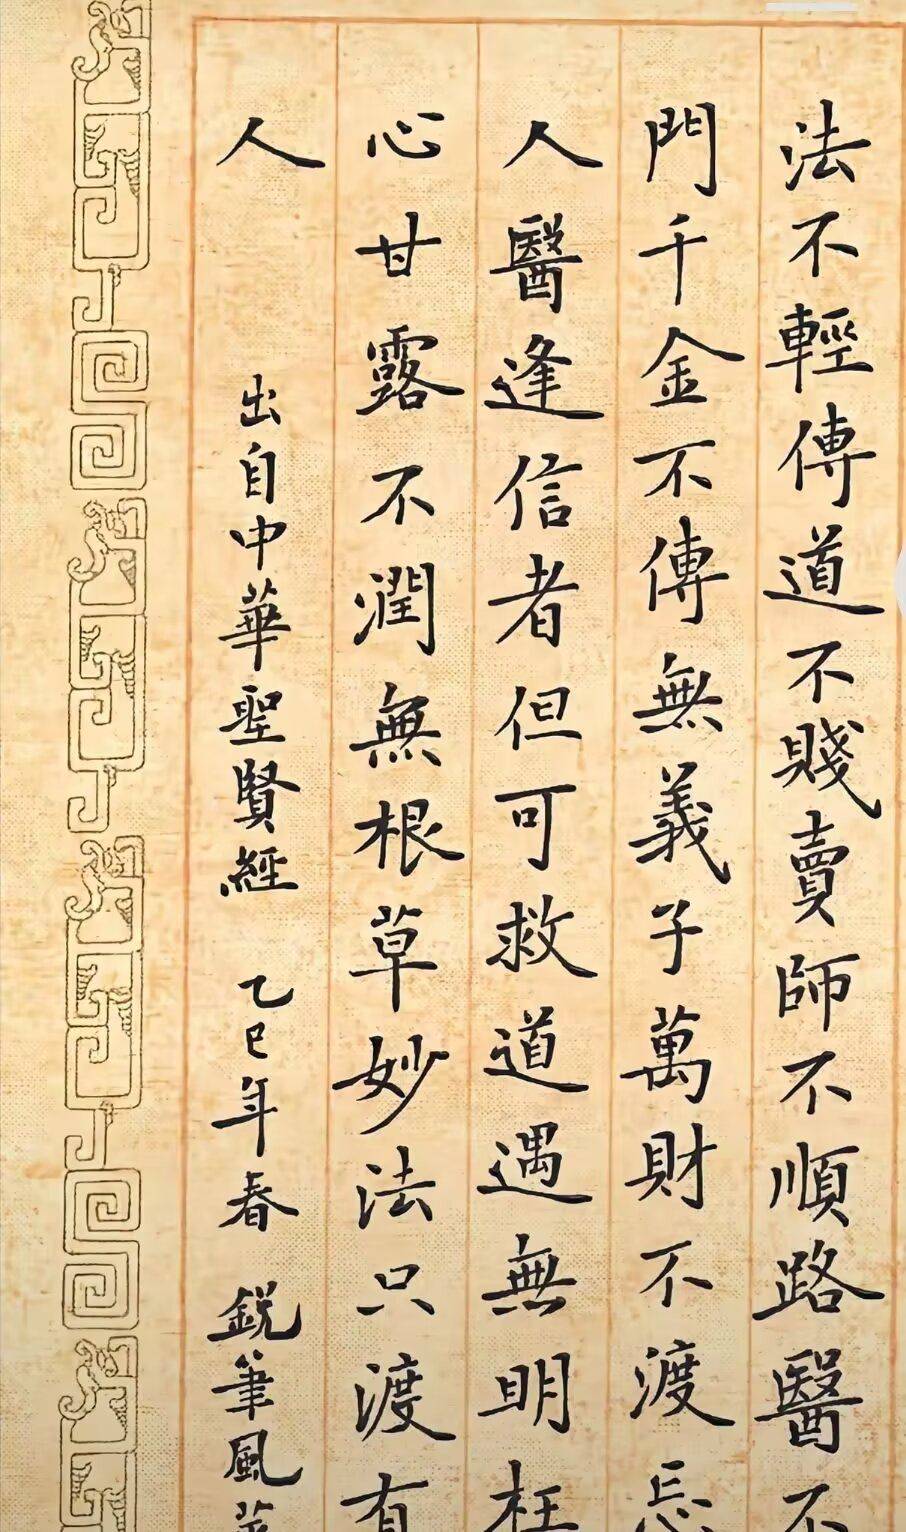 法不輕傳道不賤賣師不順路醫不
門千金不傳無義子萬財不渡忘
人醫逢信者但可救道遇無明枉
心甘露不潤無根草妙法只渡有
人 出自中華聖賢經 乙巳年春 鋭筆風